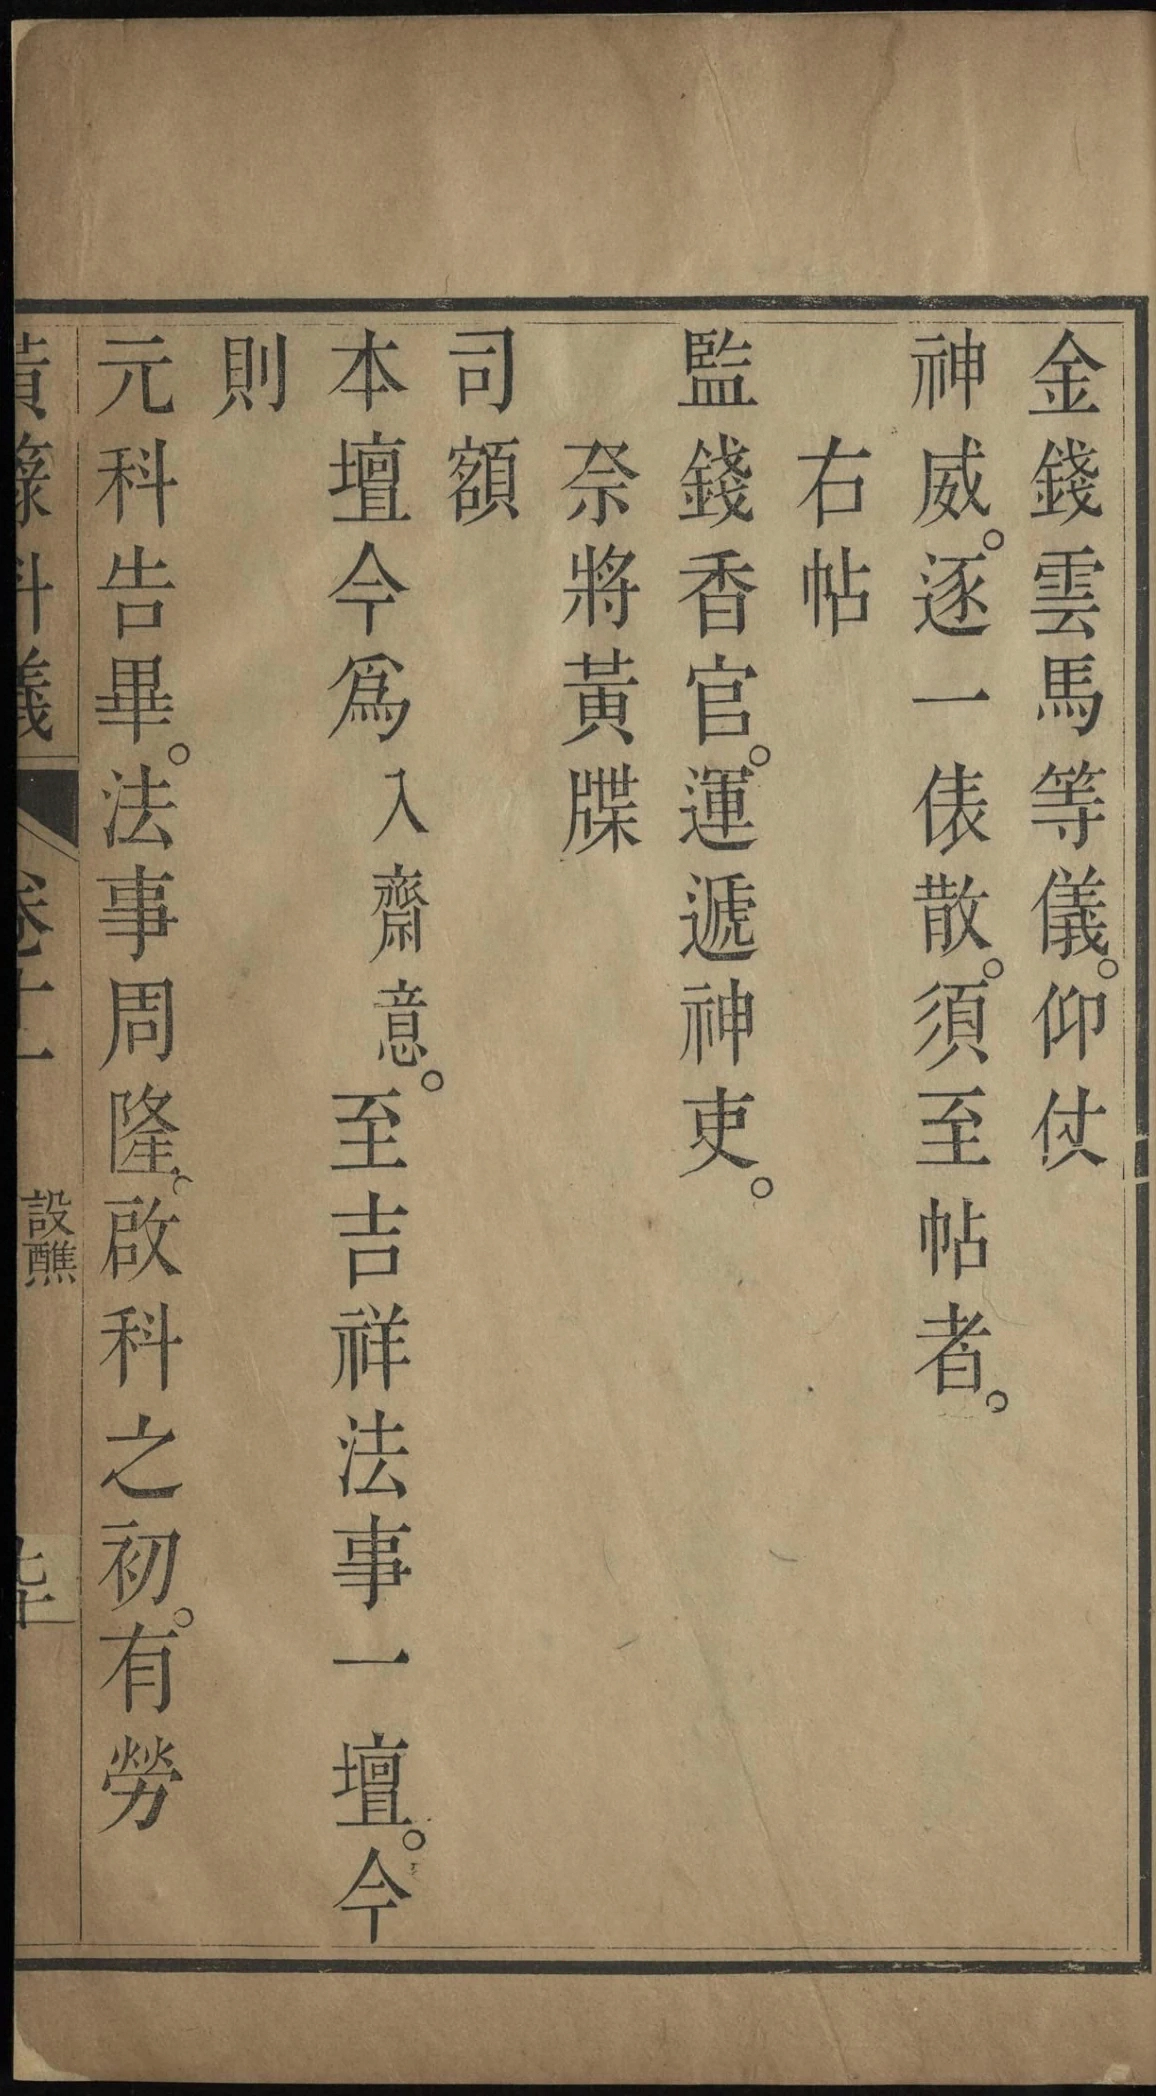 金錢雲馬等儀。仰仗
神威。逐一俵散。須至帖者。
右帖
監錢香官。運遞神吏。
奈將黃牒
司額
本壇今爲入齋意。至吉祥法事一壇。今
則
元科告畢。法事周隆。啟科之初。有勞
黃籙科儀 卷十一 設醮